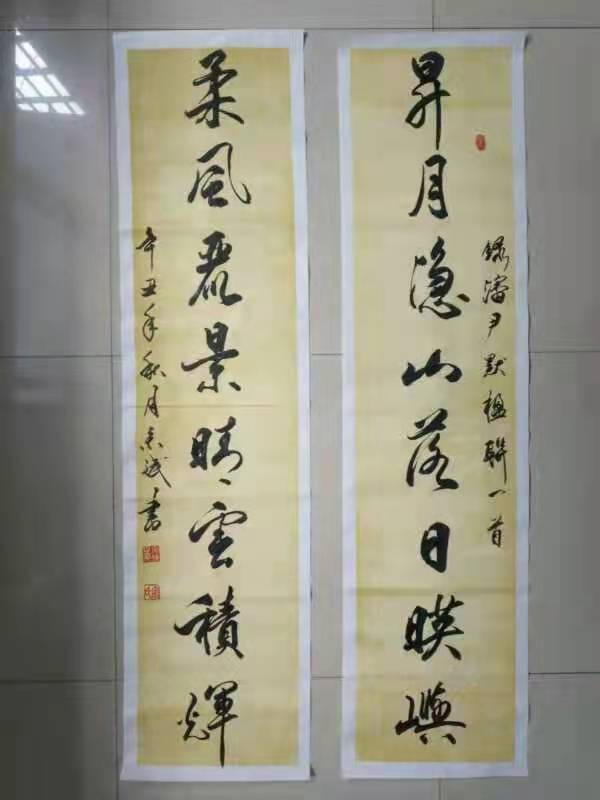 昇月隱山落日暎嶼
録瀋尹默楹聯一首
柔風麗景晴雲積輝
辛丑年秋月書